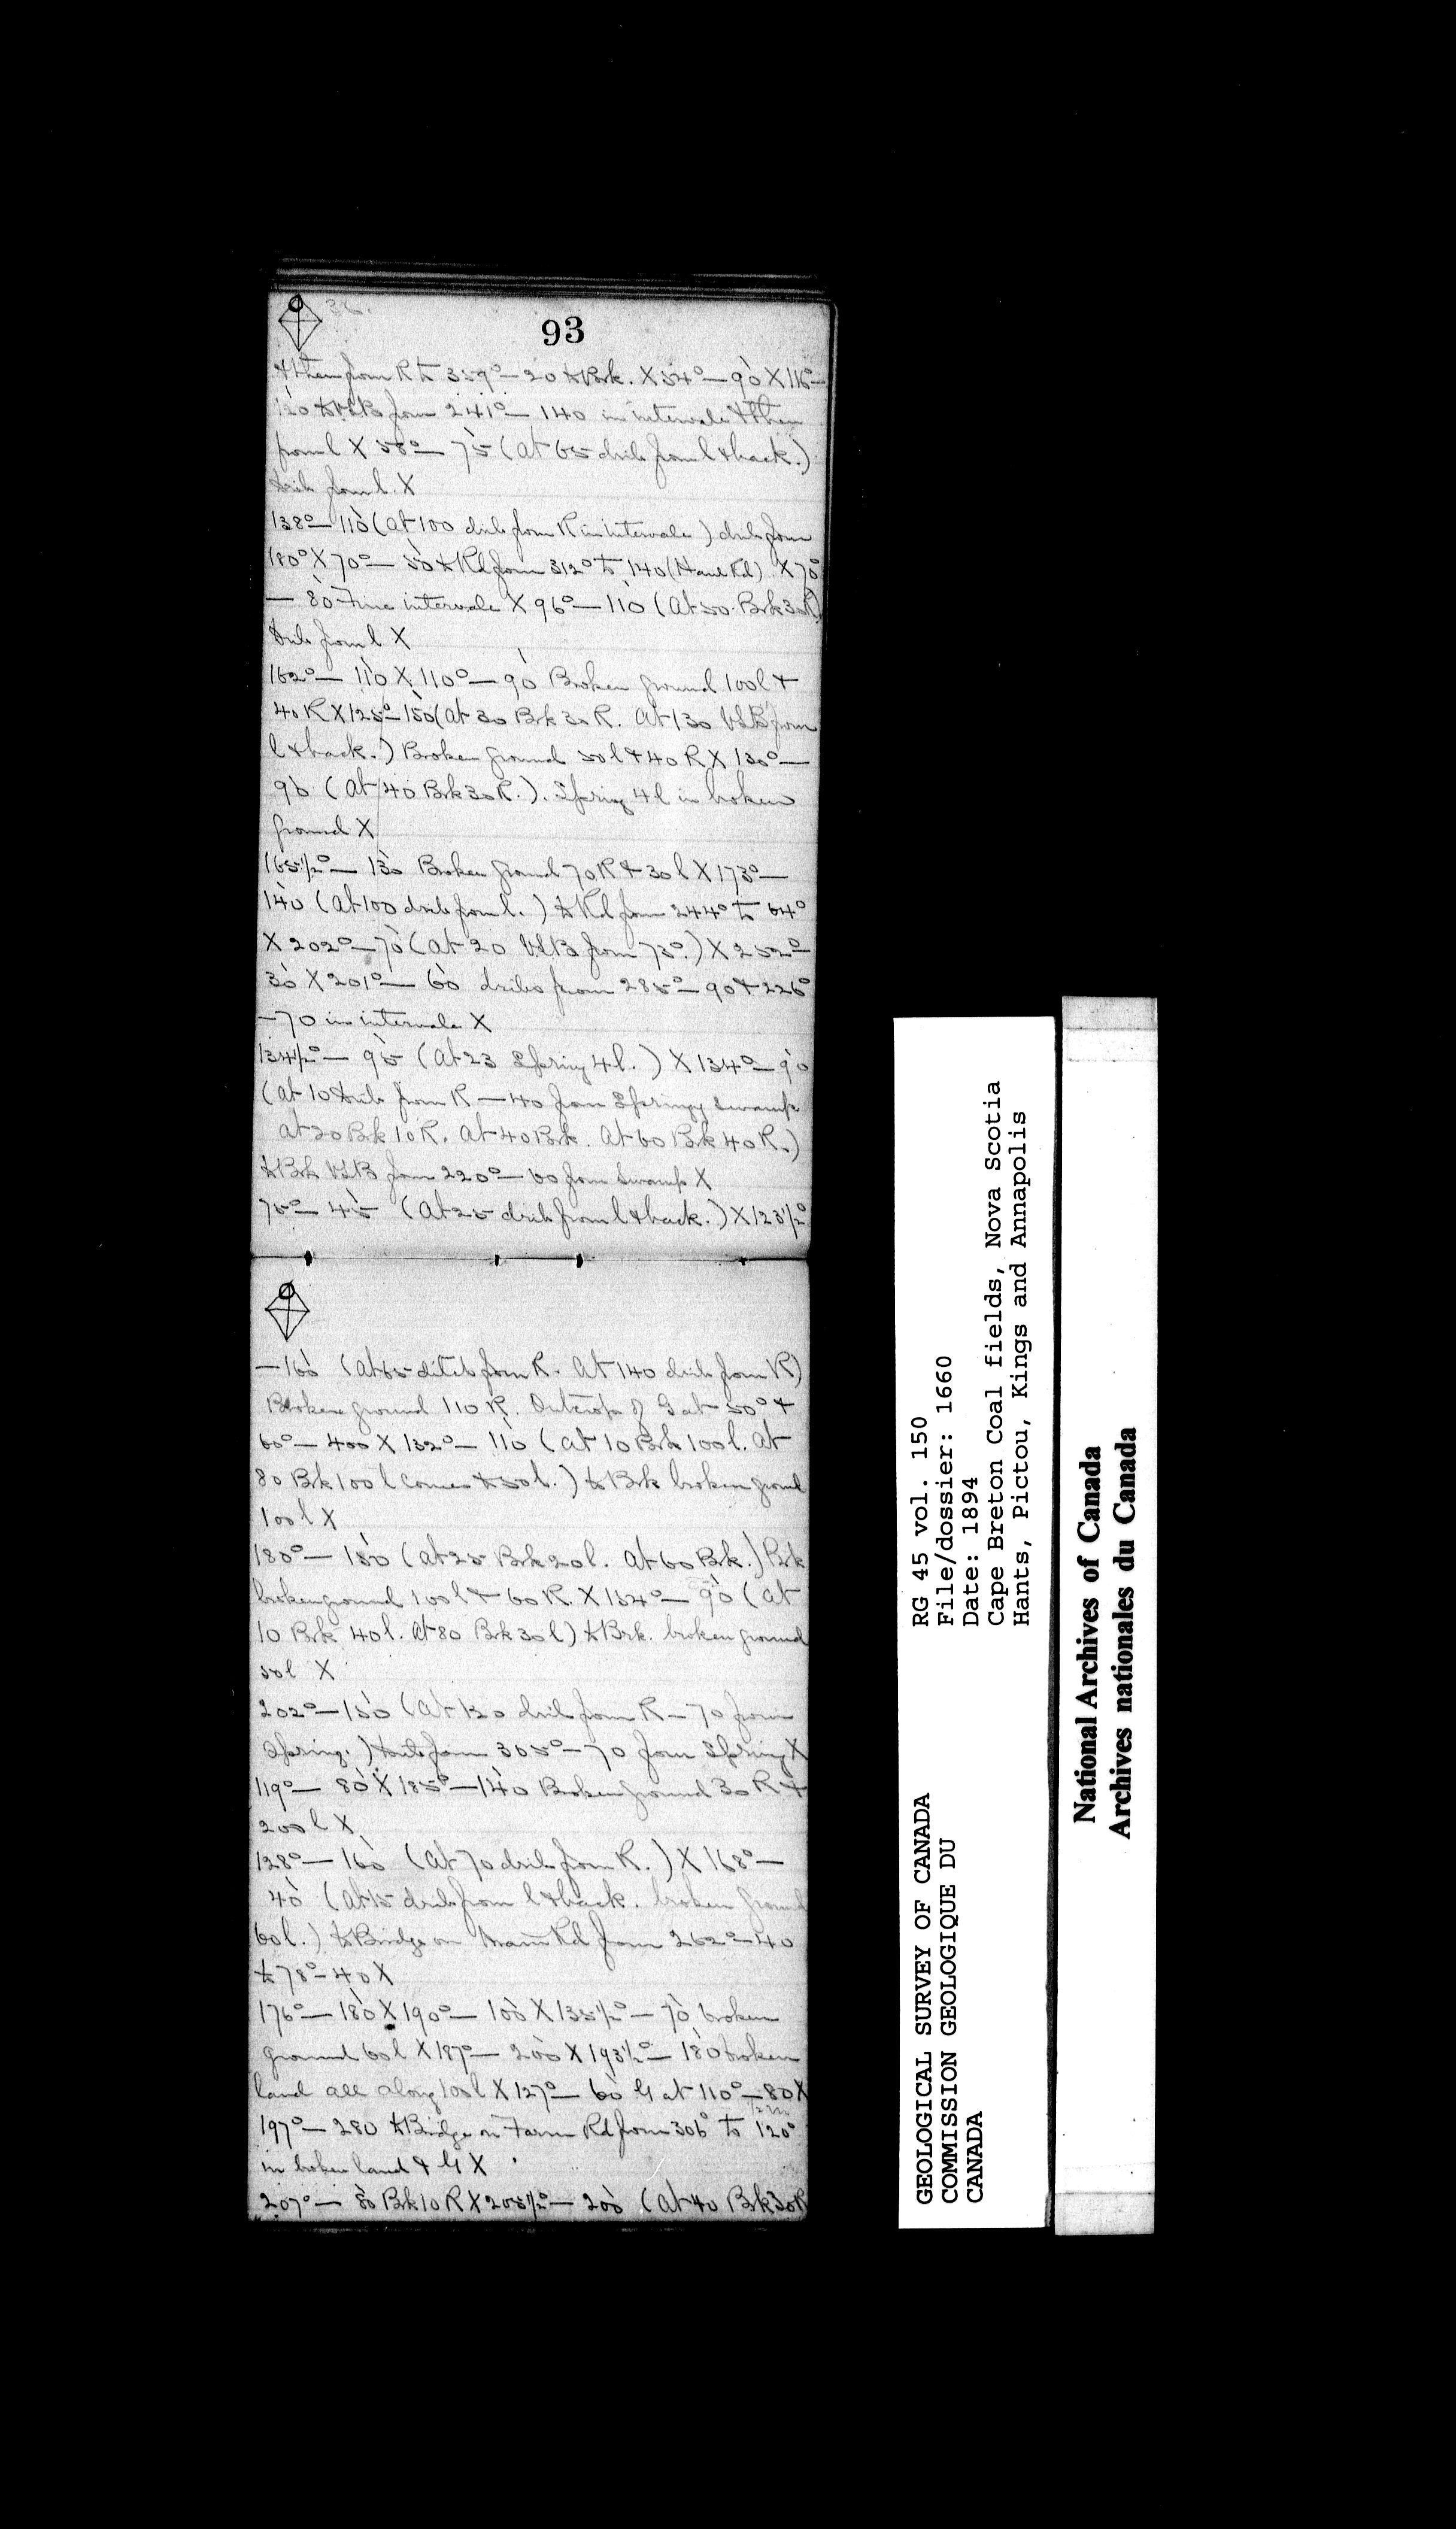 36.
93
& then from R to 359° — 20 to Brk. X 54° — 90 X 116° —
120 to VLB from 241° — 140 in intervale & then
from l X 58° — 75 (at 65 drib from l & back.)
drib from l. X
138° — 110 (at 100 drib from R in intervale) drib from
180° X 70° — 50 to Rd from 312° to 140 (Haul Rd) X 70°
— 80 Fine intervale X 96° — 110 (at 50 Brk 30 R)
drib from l X
162° — 110 X 110° — 90 Broken ground 100 l &
40 R X 125° — 150 (at 30 Brk 30 R. At 130 VLB from
l & back.) Broken ground 50 l & 40 R X 130° —
90 (at 40 Brk 30 R.). Spring 4 l in broken
ground X
165½° — 130 Broken ground 70 R & 30 l X 173° —
140 (at 100 drib from l.) to Rd from 244° to 64°
X 202° — 70 (at 20 VLB from 73°.) X 252° —
30 X 201° — 60 dribs from 285° — 90 & 226°
— 70 in intervale X
134½° — 95 (at 23 Spring 4 l.) X 134° — 90
(at 10 drib from R — 40 from Springy swamp
at 20 Brk 10 R. At 40 Brk. At 60 Brk 40 R.)
to Brk VLB from 220° — 60 from swamp X
75° — 45 (at 25 drib from l & back.) X 123½°
— 160 (at 65 ditch from R. At 140 drib from R)
Broken ground 110 R. Outcrop of G at 50° &
60° — 400 X 132° — 110 (at 10 Brk 100 l. At
80 Brk 100 l comes to 50 l.) to Brk broken ground
100 l X
180° — 150 (at 25 Brk 20 l. At 60 Brk.) Brk
broken ground 100 l & 60 R. X 154° — 90 (at
10 Brk 40 l. At 80 Brk 30 l) to Brk. broken ground
50 l X
202° — 150 (at 120 drib from R — 70 from
Spring.) drib from 305° — 70 from Spring X
119° — 80 X 185° — 140 Broken ground 30 R &
200 l X
128° — 160 (at 70 drib from R.) X 168° —
40 (at 15 drib from l & back. broken ground
60 l.) to Bridge on Main Rd from 262° — 40
to 78° — 40 X
176° — 180 X 190° — 100 X 135½° — 70 broken
ground 60 l X 187° — 200 X 193½° — 180 broken
land all along 100 l X 127° — 60 G at 110° — 80 X
197° — 280 to Bridge on Farm Rd from 306° to 120°
in broken land & G X
207° — 80 Brk 10 R X 205½° — 200 (at 40 Brk 30 R
GEOLOGICAL SURVEY OF CANADA
COMMISSION GEOLOGIQUE DU
CANADA
RG 45 vol. 150
File/dossier: 1660
Date: 1894
Cape Breton Coal fields, Nova Scotia
Hants, Pictou, Kings and Annapolis
National Archives of Canada
Archives nationales du Canada